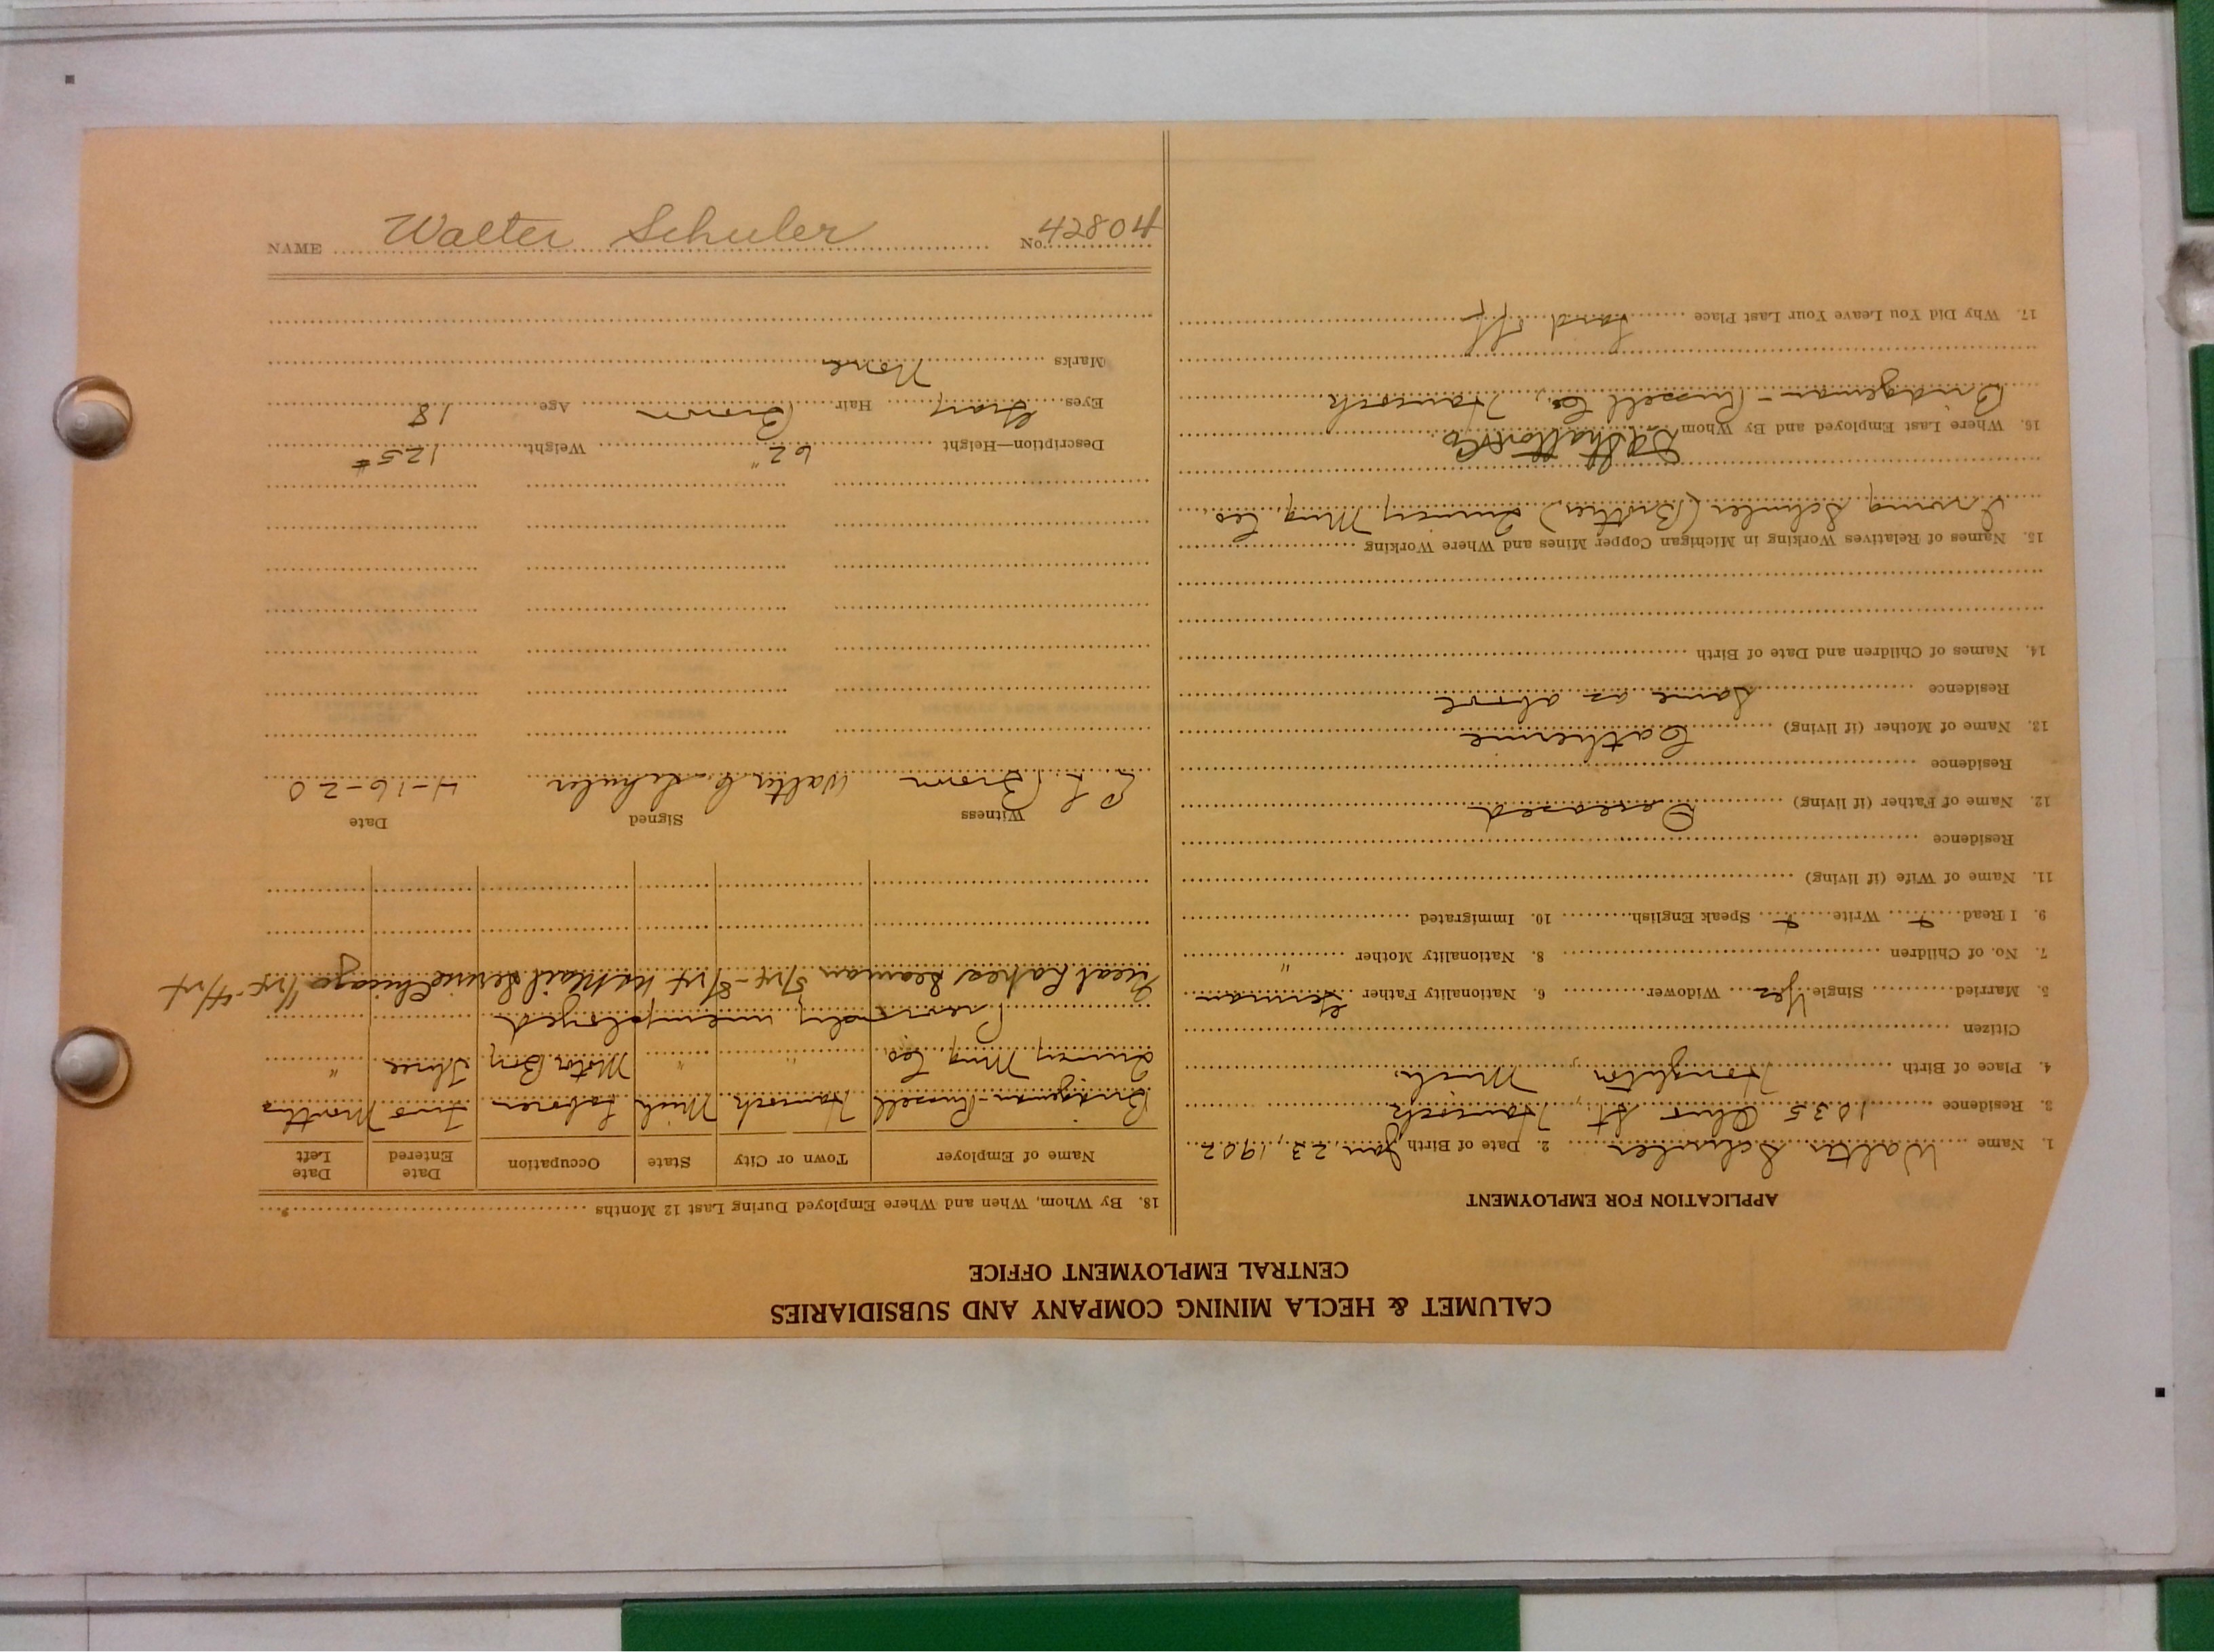 CALUMET & HECLA MINING COMPANY AND SUBSIDIARIES
CENTRAL EMPLOYMENT OFFICE
APPLICATION FOR EMPLOYMENT
1. Name Walter Schuler 2. Date of Birth Jan 23, 1902
3. Residence 1035 St., Hancock
4. Place of Birth Houghton, Mich.
Citizen
5. Married Single Yes Widower 6. Nationality Father German
7. No. of Children 8. Nationality Mother "
9. I Read Write Speak English 10. Immigrated
11. Name of Wife (if living)
Residence
12. Name of Father (if living) Deceased
Residence
13. Name of Mother (if living) Catherine
Residence Same as above
14. Names of Children and Date of Birth
15. Names of Relatives Working in Michigan Copper Mines and Where Working
Irving Schuler (Brother) Quincy Mng. Co.
16. Where Last Employed and By Whom
Bridgeman-Russell Co., Hancock
17. Why Did You Leave Your Last Place Laid off
18. By Whom, When and Where Employed During Last 12 Months
Name of Employer Town or City State Occupation Date Entered Date Left
Bridgeman-Russell Hancock Mich Laborer Two Months
Quincy Mng. Co. " " Motor Boy Three "
Previously unemployed
Great Lakes Seaman Mail Service Chicago
Witness Signed Date
Brown Walter C. Schuler 4-16-20
Description—Height 62" Weight 125#
Eyes Gray Hair Brown Age 18
Marks None
NAME Walter Schuler No. 42804